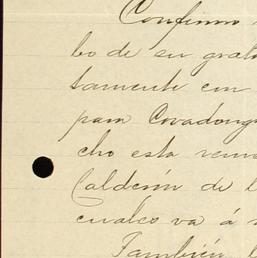 Confirmo
bo de su grat
tamente con
para Covadong
cho esta rem
Calderón de l
cuales va á
También